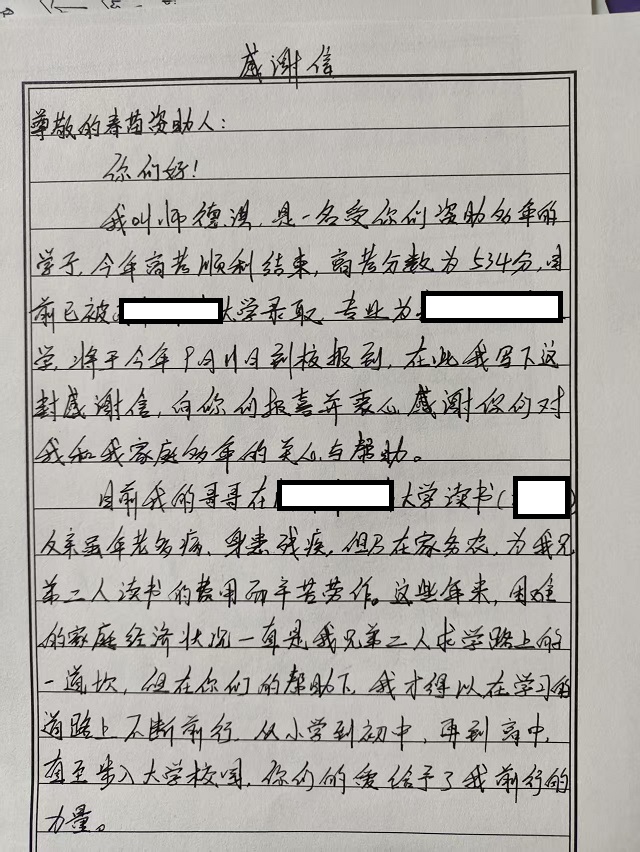 感谢信
尊敬的春苗资助人：
你们好！
我叫师德淇，是一名受你们资助多年的
学子，今年高考顺利结束，高考分数为534分，目
前已被 大学录取，专业为
学，将于今年9月11日到校报到，在此我写下这
封感谢信，向你们报喜并衷心感谢你们对
我和我家庭多年的关心与帮助。
目前我的哥哥在 大学读书（ ）
父亲虽年老多病，身患残疾，但仍在家务农，为我兄
弟二人读书的费用而辛苦劳作。这些年来，困难
的家庭经济状况一直是我兄弟二人求学路上的
一道坎，但在你们的帮助下，我才得以在学习的
道路上不断前行，从小学到初中，再到高中，
直至步入大学校园，你们的爱给予了我前行的
力量。